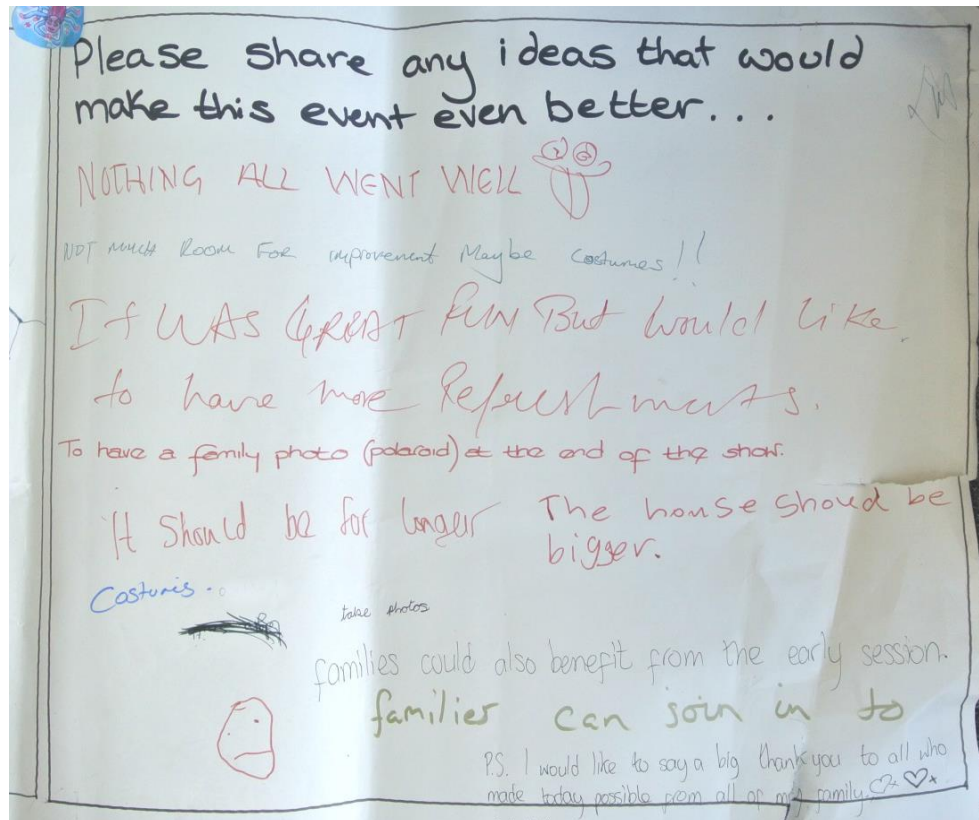 Please share any ideas that would
make this event even better...
NOTHING ALL WENT WELL
NOT much Room For improvement Maybe Costumes!!
It WAS GREAT FUN But would like
to have more Refreshments.
To have a family photo (polaroid) at the end of the show.
It should be for longer
The house shoud be
bigger.
Costumes..
take photos
families could also benefit from the early session.
familier can join in to
P.S. I would like to say a big thank you to all who
made today possible from all of my family.